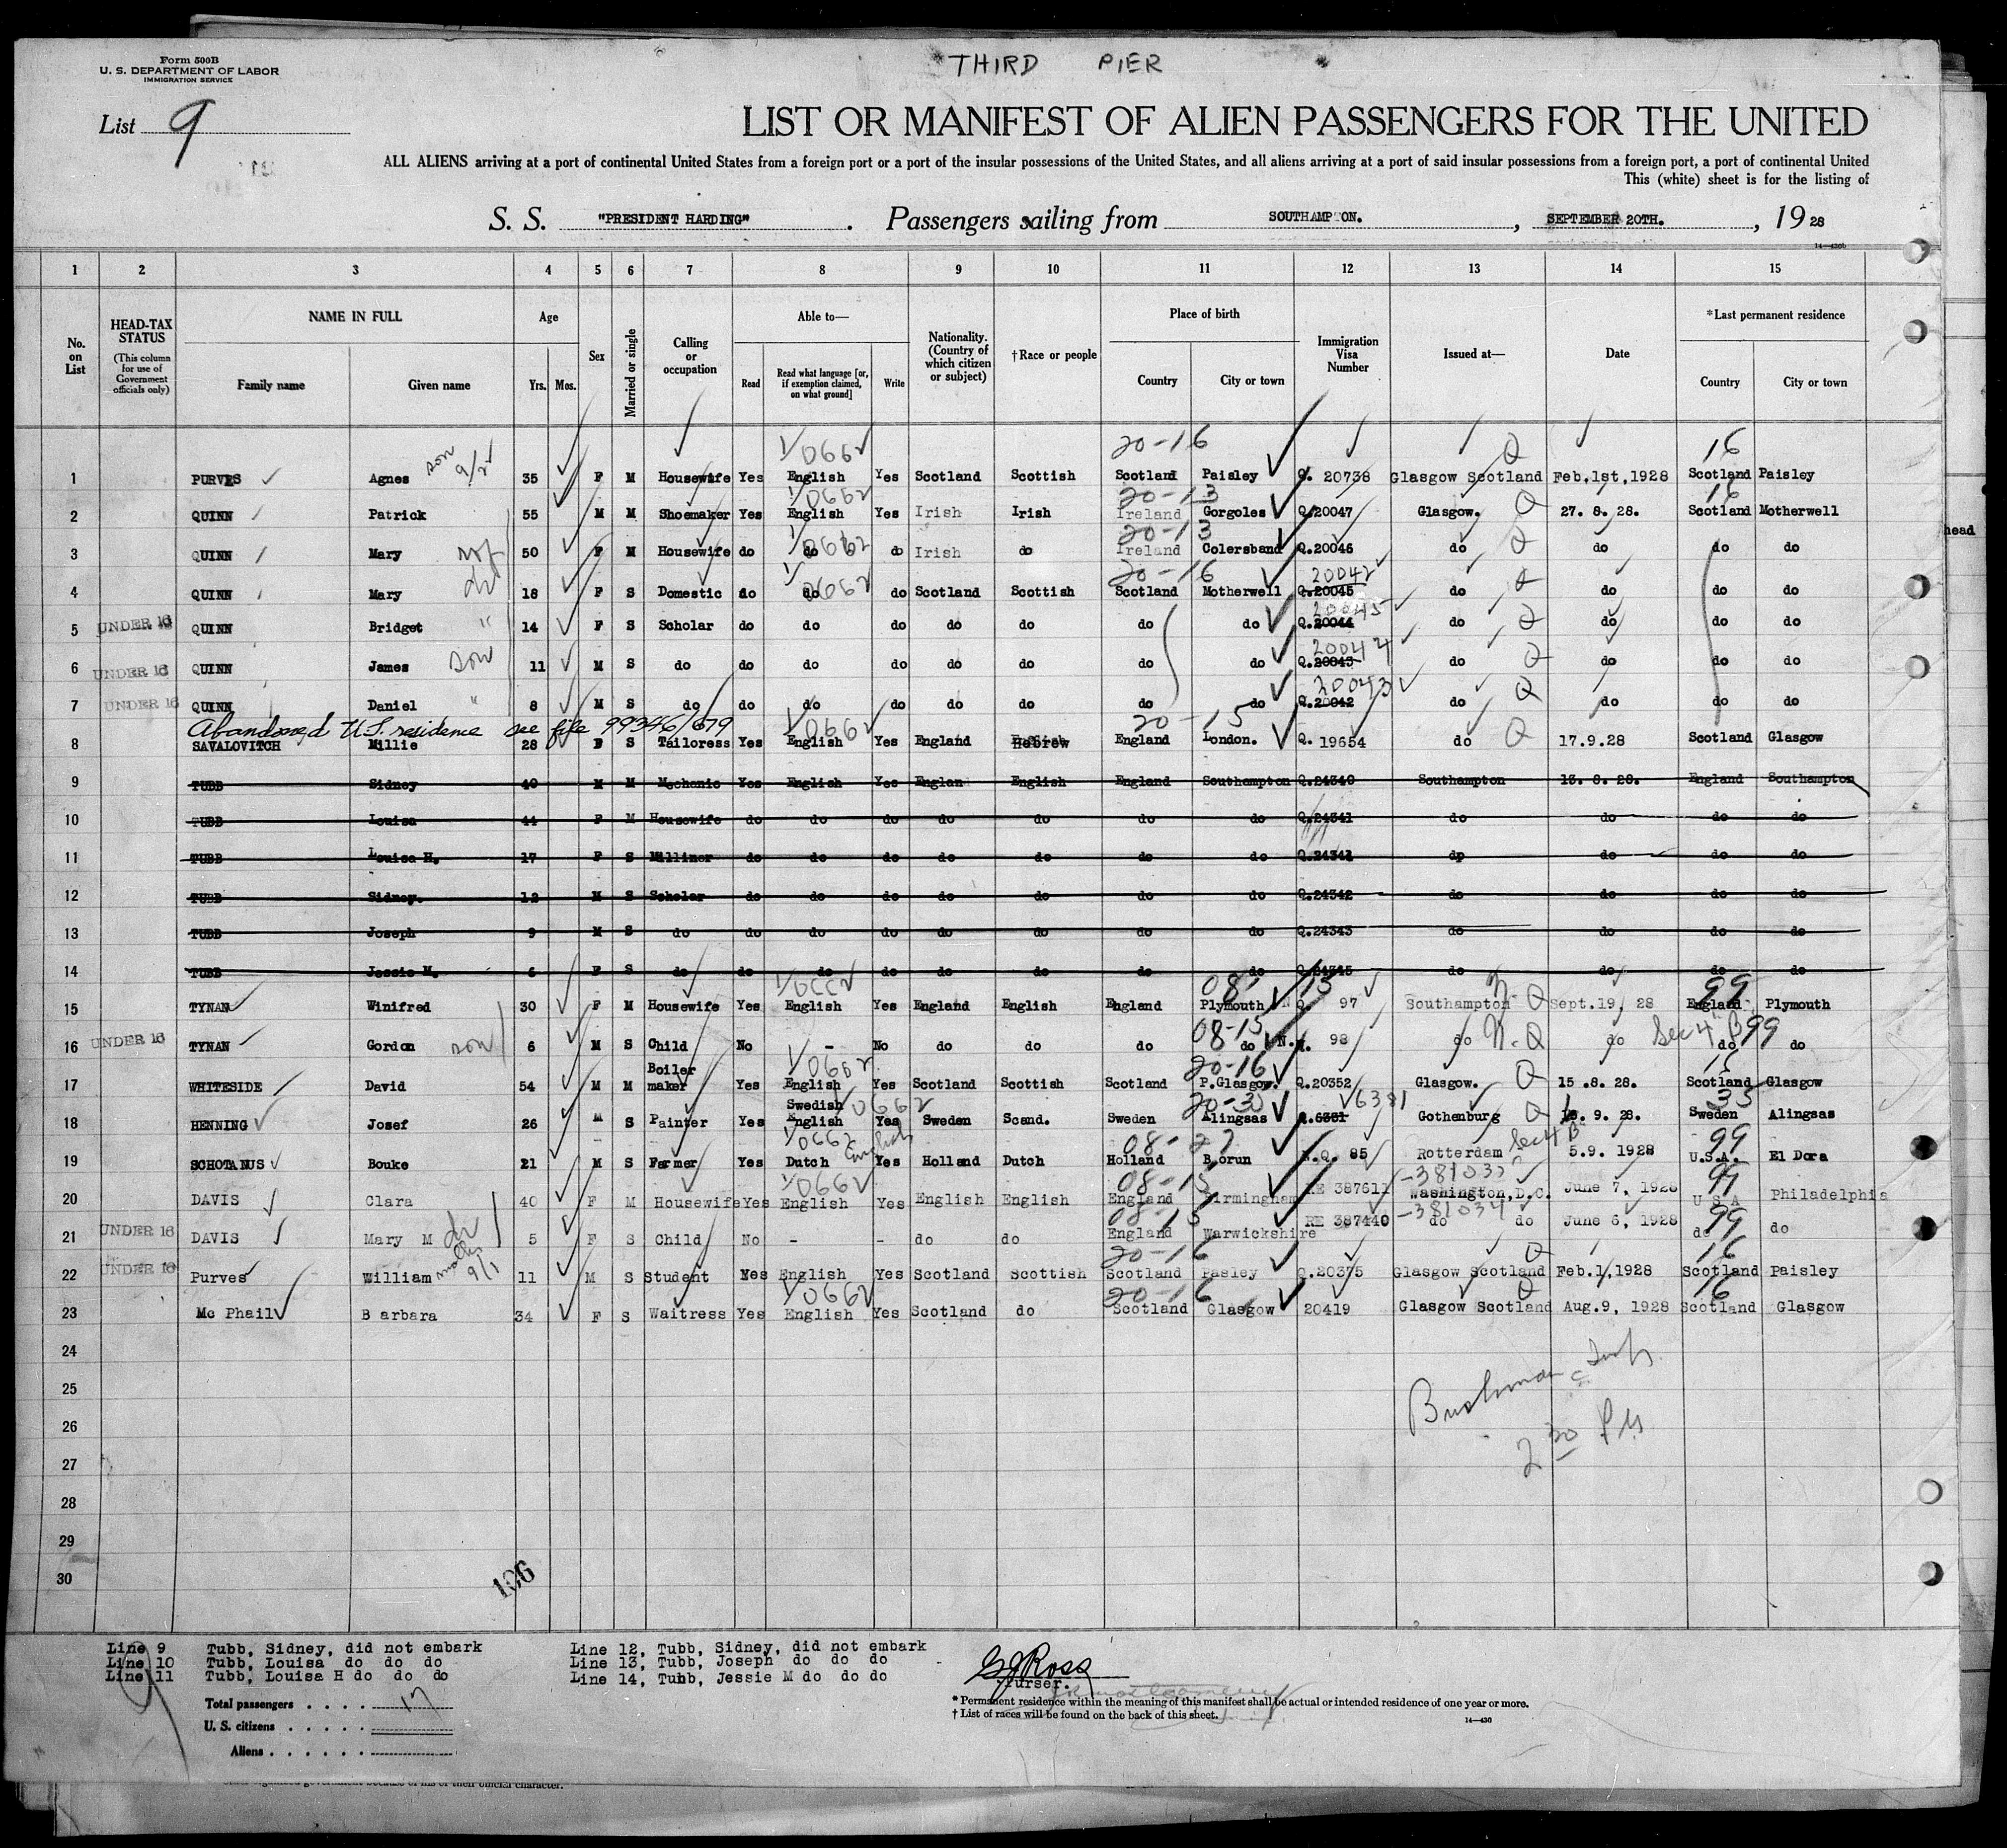 THIRD PIER
Form 500B
U. S. DEPARTMENT OF LABOR
IMMIGRATION SERVICE
List 9
LIST OR MANIFEST OF ALIEN PASSENGERS FOR THE UNITED
ALL ALIENS arriving at a port of continental United States from a foreign port or a port of the insular possessions of the United States, and all aliens arriving at a port of said insular possessions from a foreign port, a port of continental United
This (white) sheet is for the listing of
S. S. "PRESIDENT HARDING". Passengers sailing from SOUTHAMPTON., SEPTEMBER 20TH., 19 28
1 2 3 4 5 6 7 8 9 10 11 12 13 14 15
No. on List
HEAD-TAX STATUS (This column for use of Government officials only)
NAME IN FULL Family name Given name
Age Yrs. Mos.
Sex
Married or single
Calling or occupation
Able to— Read Read what language [or, if exemption claimed, on what ground] Write
Nationality. (Country of which citizen or subject)
†Race or people
Place of birth Country City or town
Immigration Visa Number
Issued at—
Date
*Last permanent residence Country City or town
20-16 16
1 PURVES Agnes son 9/2 35 F M Housewife Yes English Yes Scotland Scottish Scotland Paisley Q. 20738 Glasgow Scotland Q Feb.1st,1928 Scotland Paisley
20-13 16
2 QUINN Patrick 55 M M Shoemaker Yes English Yes Irish Irish Ireland Gorgoles Q.20047 Glasgow. Q 27. 8. 28. Scotland Motherwell
20-13
3 QUINN Mary wf 50 F M Housewife do do do Irish do Ireland Colersband Q.20046 do Q do do do
20-16 20042
4 QUINN Mary dr 18 F S Domestic do do do Scotland Scottish Scotland Motherwell Q.20045 do Q do do do
20045
5 UNDER 16 QUINN Bridget " 14 F S Scholar do do do do do do do Q.20044 do Q do do do
20044
6 UNDER 16 QUINN James son 11 M S do do do do do do do do Q.20043 do Q do do do
20043
7 UNDER 16 QUINN Daniel " 8 M S do do do do do do do do Q.20042 do Q do do do
Abandoned U.S. residence see file 99346/679 20-15
8 SAVALOVITCH Millie 28 F S Tailoress Yes English Yes England Hebrew England London. Q. 19654 do Q 17.9.28 Scotland Glasgow
9 TUBB Sidney 40 M M Mechanic Yes English Yes Englan English England Southampton Q.24340 Southampton 13. 8. 28. England Southampton
10 TUBB Louisa 44 F M Housewife do do do do do do do Q.24341 do do do do
11 TUBB Louisa H. 17 F S Milliner do do do do do do do Q.24341 dp do do do
12 TUBB Sidney. 12 M S Scholar do do do do do do do Q.24342 do do do do
13 TUBB Joseph 9 M S do do do do do do do do Q.24343 do do do do
14 TUBB Jessie M. 6 F S do do do do do do do do Q.24345 do do do do
08-15 99
15 TYNAN Winifred 30 F M Housewife Yes English Yes England English England Plymouth N.Q. 97 Southampton N-Q Sept.19, 28 England Plymouth
08-15 Sec 4 B 99
16 UNDER 16 TYNAN Gordon son 6 M S Child No - No do do do do N. 98 do N.Q do do do
20-16 16
17 WHITESIDE David 54 M M Boiler maker Yes English Yes Scotland Scottish Scotland P.Glasgow. Q.20352 Glasgow. Q 15 .8. 28. Scotland Glasgow
20-35 6381 35
18 HENNING Josef 26 M S Painter Yes Swedish English Yes Sweden Scand. Sweden Alingsas Q.6331 Gothenburg Q 18. 9. 28. Sweden Alingsas
08-27 Sec 4 B 99
19 SCHOTANUS Bouke 21 M S Farmer Yes Dutch English Yes Holland Dutch Holland Borun N.Q. 85 Rotterdam 5.9. 1928 U.S.A. El Dora
08-15 99
20 DAVIS Clara 40 F M Housewife Yes English Yes English English England Birmingham RE 387611 Washington,D.C. June 7, 1928 U S A Philadelphia
08-15 -381034 99
21 UNDER 16 DAVIS Mary M dr 5 F S Child No - - do do England Warwickshire RE 387440 do do June 6, 1928 do do
20-16 16
22 UNDER 16 Purves William mother 9/1 11 M S Student Yes English Yes Scotland Scottish Scotland Pasley Q.20375 Glasgow Scotland Q Feb.1,1928 Scotland Paisley
20-16 16
23 Mc Phail Barbara 34 F S Waitress Yes English Yes Scotland do Scotland Glasgow 20419 Glasgow Scotland Q Aug.9, 1928 Scotland Glasgow
24
25
26
27
28
29
30
Bushman Insp.
2 30 PM
106
Line 9 Tubb, Sidney, did not embark
Line 10 Tubb, Louisa do do do
Line 11 Tubb, Louisa H do do do
Line 12, Tubb, Sidney, did not embark
Line 13, Tubb, Joseph do do do
Line 14, Tubb, Jessie M do do do
Total passengers . . . . 17
U. S. citizens . . . . .
Aliens . . . . . .
G J Ross
Purser.
* Permanent residence within the meaning of this manifest shall be actual or intended residence of one year or more.
† List of races will be found on the back of this sheet.
14—430
head